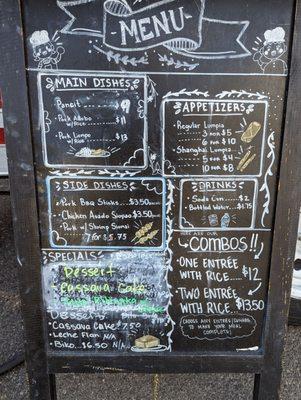 MENU
MAIN DISHES
Pancit
Pork Adobo
w/ Rice
Pork Lumpo
w/ Rice $13
APPETIZERS
Regular Lumpia
3 FOR $5
6 FOR
Shanghai Lumpia
5 FOR $4
10 FOR $8
SIDE DISHES
Pork BBQ Sticks $3.50
Chicken Asado Siopao $3.50
Pork w/ Shrimp Siumai
7 FOR $5.75
DRINKS
Soda Can $2
Bottled Water $1.75
SPECIALS
Dessert
Cassava Cake
DESSERTS
Cassava Cake 7.50
Leche Flan N/A
Biko $6.50 N/A
HERE ARE OUR
COMBOS!!
ONE ENTRÉE
WITH RICE $12
TWO ENTRÉE
WITH RICE $13.50
CHOOSE ANY ENTRÉES ABOVE
TO MAKE YOUR MEAL
COMPLETE!